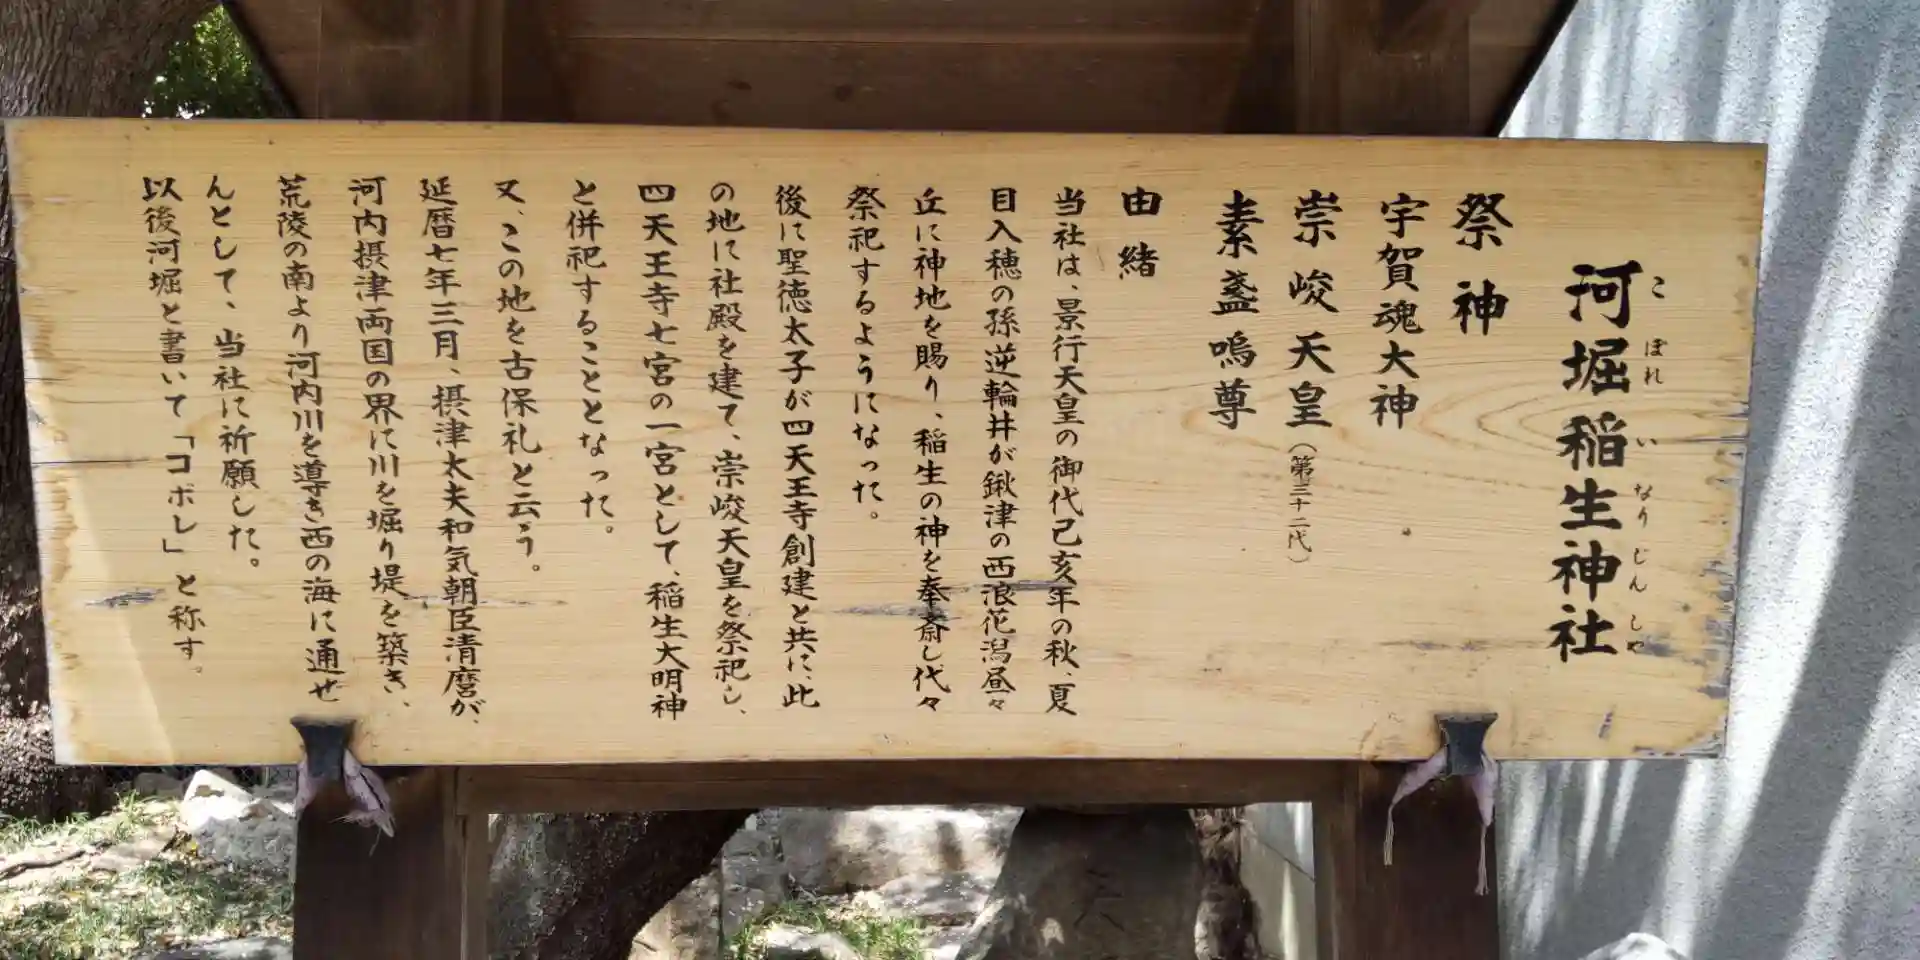 河堀稲生神社
こぼれいなりじんしゃ
祭神
宇賀魂大神
崇峻天皇（第三十二代）
素盞嗚尊
由緒
当社は、景行天皇の御代己亥年の秋、夏
目入穂の孫逆輪井が鍬津の西浪花潟昼々
丘に神地を賜り、稲生の神を奉斎し代々
祭祀するようになった。
後に聖徳太子が四天王寺創建と共に、此
の地に社殿を建て、崇峻天皇を祭祀し、
四天王寺七宮の一宮として、稲生大明神
と併祀することとなった。
又、この地を古保礼と云う。
延暦七年三月、摂津太夫和気朝臣清麿が、
河内摂津両国の界に川を堀り堤を築き、
荒陵の南より河内川を導き西の海に通ぜ
んとして、当社に祈願した。
以後河堀と書いて「コボレ」と称す。
天